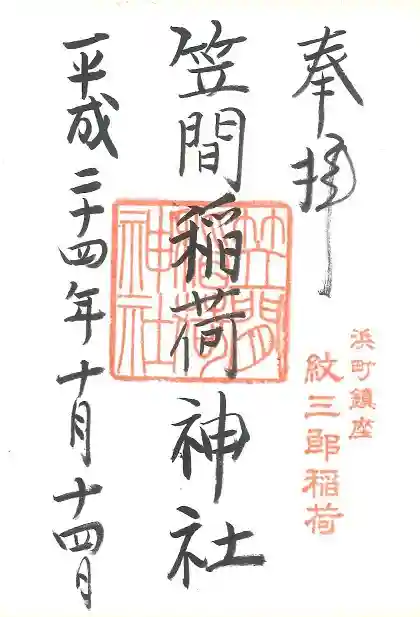 奉拝
浜町鎮座
紋三郎稲荷
笠間稲荷神社
笠間稲荷神社
平成二十四年十月十四日